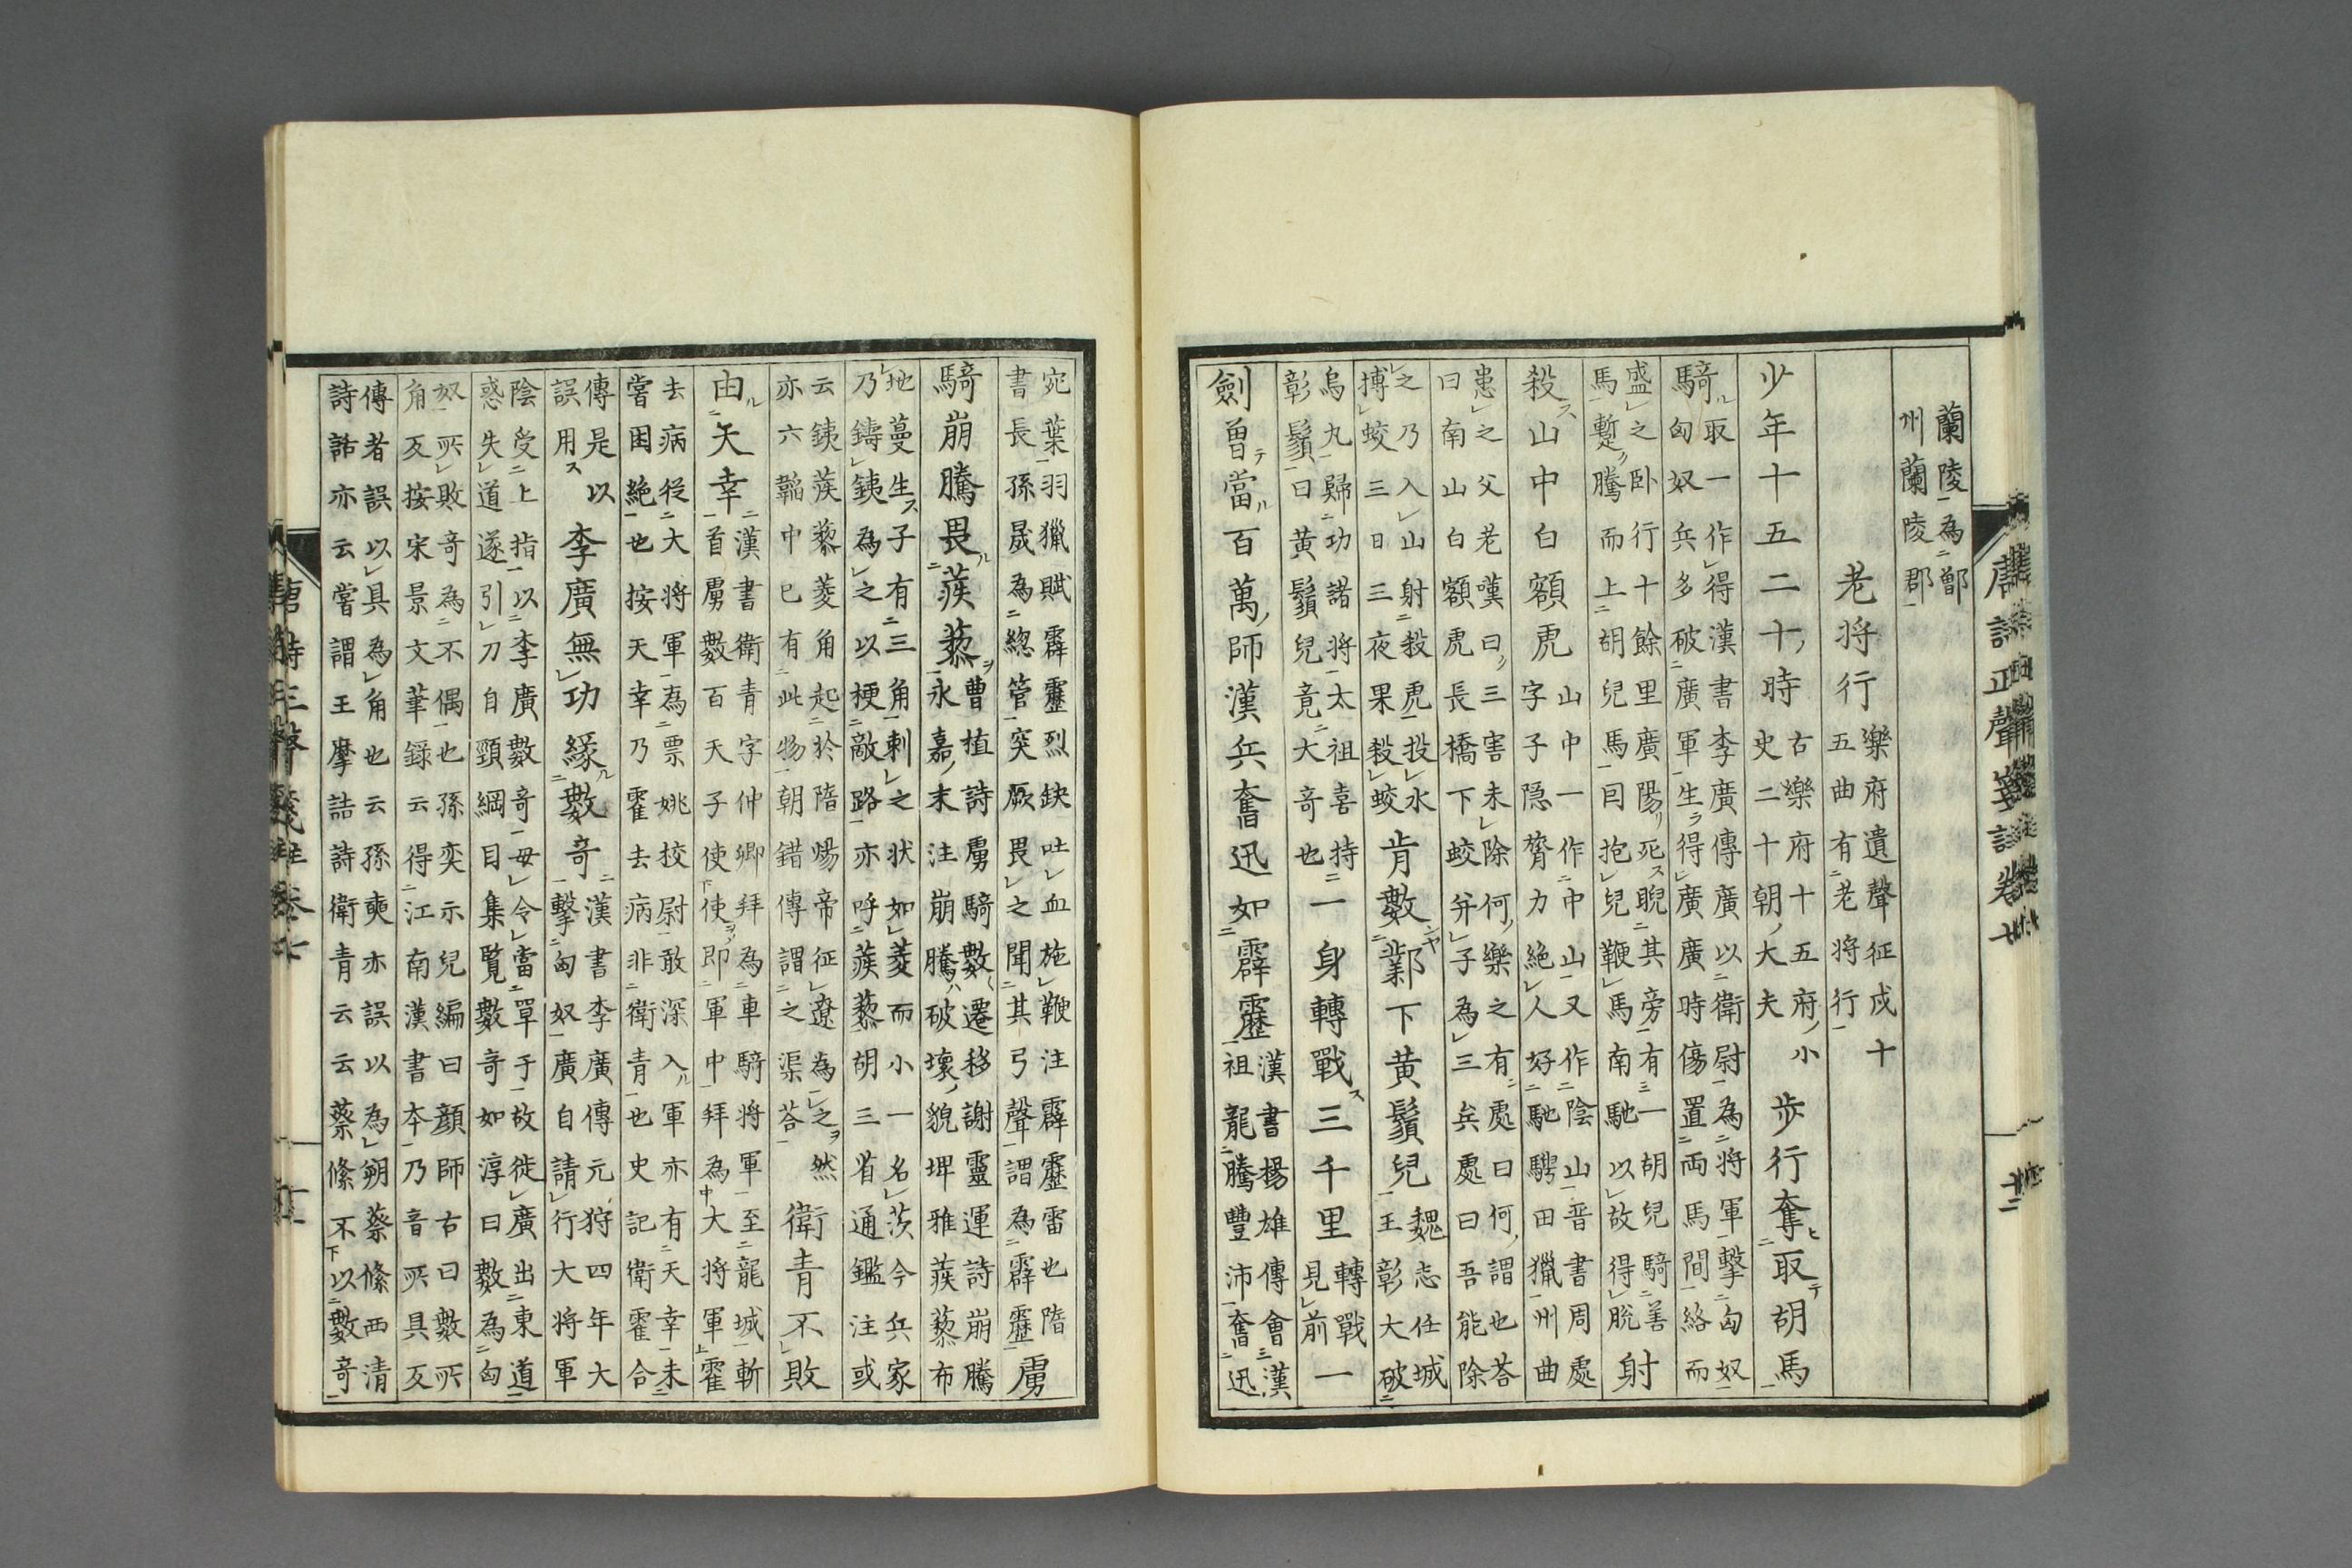 蘭陵為鄫
州蘭陵郡
老將行
樂府遺聲征戍十
五曲有老將行
少年十五二十時
古樂府十五府小
史二十朝大夫
步行奪取胡馬
騎
取一作得漢書李廣傳廣以衛尉為將軍擊匈奴
匈奴兵多破廣軍生得廣廣時傷置両馬間絡而
盛之卧行十餘里廣陽死睨其旁有一胡兒騎善
馬蹔騰而上胡兒馬囙抱兒鞭馬南馳以故得脫
射
殺山中白額虎
山中一作中山又作陰山晉書周處
字子隱膂力絕人好馳騁田獵州曲
患之父老嘆曰三害未除何樂之有處曰何謂也荅
曰南山白額虎長橋下蛟并子為三矣處曰吾能除
之乃入山射殺虎投水
搏蛟三日三夜果殺蛟
肯數鄴下黃鬚兒
魏志任城
王彰大破
烏丸歸功諸將太祖喜持
彰鬚曰黃鬚兒竟大奇也
一身轉戰三千里
轉戰
見前
一
劍曾當百萬師漢兵奮迅如霹靂
漢書揚雄傳會漢
祖龍騰豐沛奮迅
宛葉羽獵賦霹靂烈缺吐血施鞭注霹靂雷也隋
書長孫晟為緫管突厥畏之聞其弓聲謂為霹靂
虜
騎崩騰畏蒺藜
曹植詩虜騎數遷移謝靈運詩崩騰
永嘉末注崩騰破壞貌埤雅蒺藜布
地蔓生子有三角刺之状如菱而小一名茨今兵家
乃鑄銕為之以梗敵路亦呼蒺藜胡三省通鑑注或
云銕蒺藜菱角起於隋煬帝征遼為之然
亦六韜中已有此物朝錯傳謂之渠荅
衛青不敗
由天幸
漢書衛青字仲卿拜為車騎將軍至龍城斬
首虜數百天子使使即軍中拜為大將軍霍
去病從大將軍為票姚校尉敢深入軍亦有天幸未
嘗困絕也按天幸乃霍去病非衛青也史記衛霍合
傳是以
誤用
李廣無功緣數奇
漢書李廣傳元狩四年大
擊匈奴廣自請行大將軍
陰受上指以李廣數奇毋令當單于故徙廣出東道
惑失道遂引刀自頸綱目集覧數奇如淳曰數為匈
奴所敗奇為不偶也孫奕示兒編曰顏師古曰數所
角反按宋景文筆録云得江南漢書本乃音所具反
傳者誤以具為角也云孫奭亦誤以為朔蔡絛西清
詩話亦云嘗謂王摩詰詩衛青云云蔡絛不以數奇